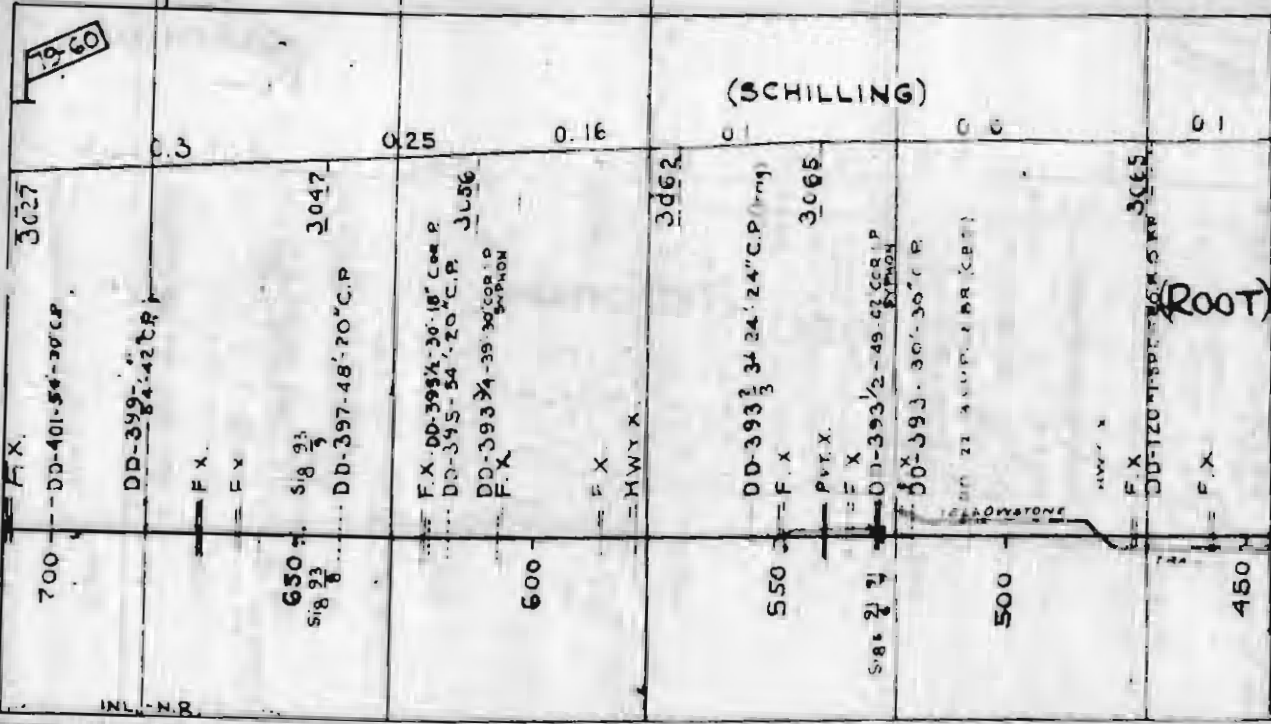 79-60
(SCHILLING)
0.3
0.25
0.16
0.1
0.1
3027
3047
3056
3062
3065
3065
(ROOT)
F.X.
DD-401-54-30"C.P.
DD-399-
84'-42"C.P.
F.X.
F.X.
Sig 93
9
DD-397-48'-20"C.P
F.X.
DD-395½-30'-18" COR P.
DD-395-54'-20"C.P.
DD-393¾-39'-30"COR I P
SYPHON
F.X.
F.X.
HWY X.
DD-393⅔ 34' 24' 24"C.P (Irrig)
F.X.
PVT.X.
F.X.
DD-393½-49'-42"COR I P
SYPHON
F.X.
DD-393-30'-30"C.P.
YELLOWSTONE
HWY X
F.X.
F.X.
700
650
Sig 93
8
600
550
500
450
INL.-N.B.